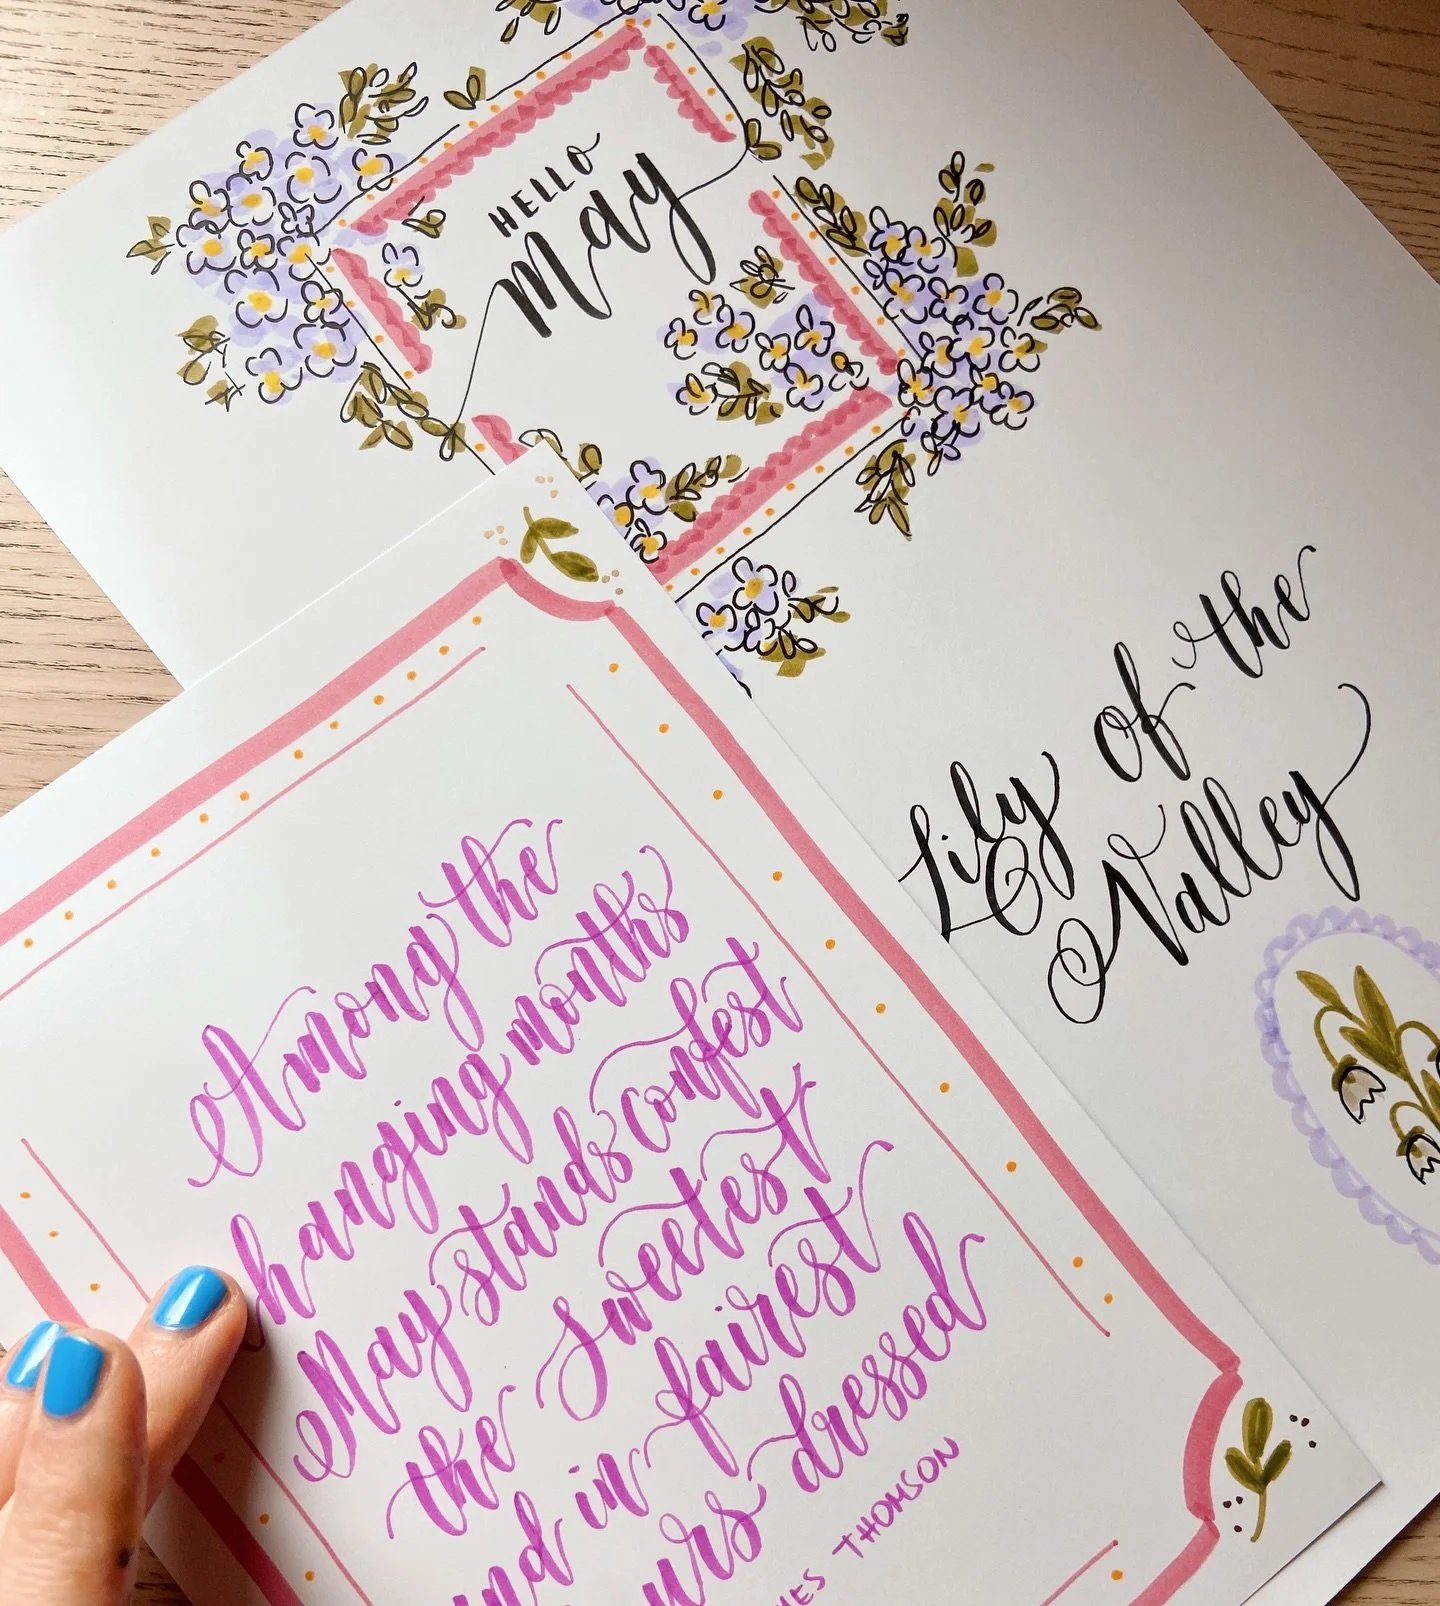 HELLO
May
Lily of the
Valley
Among the
hanging months
May stands confest
the sweetest
in fairest
dressed
THOMSON